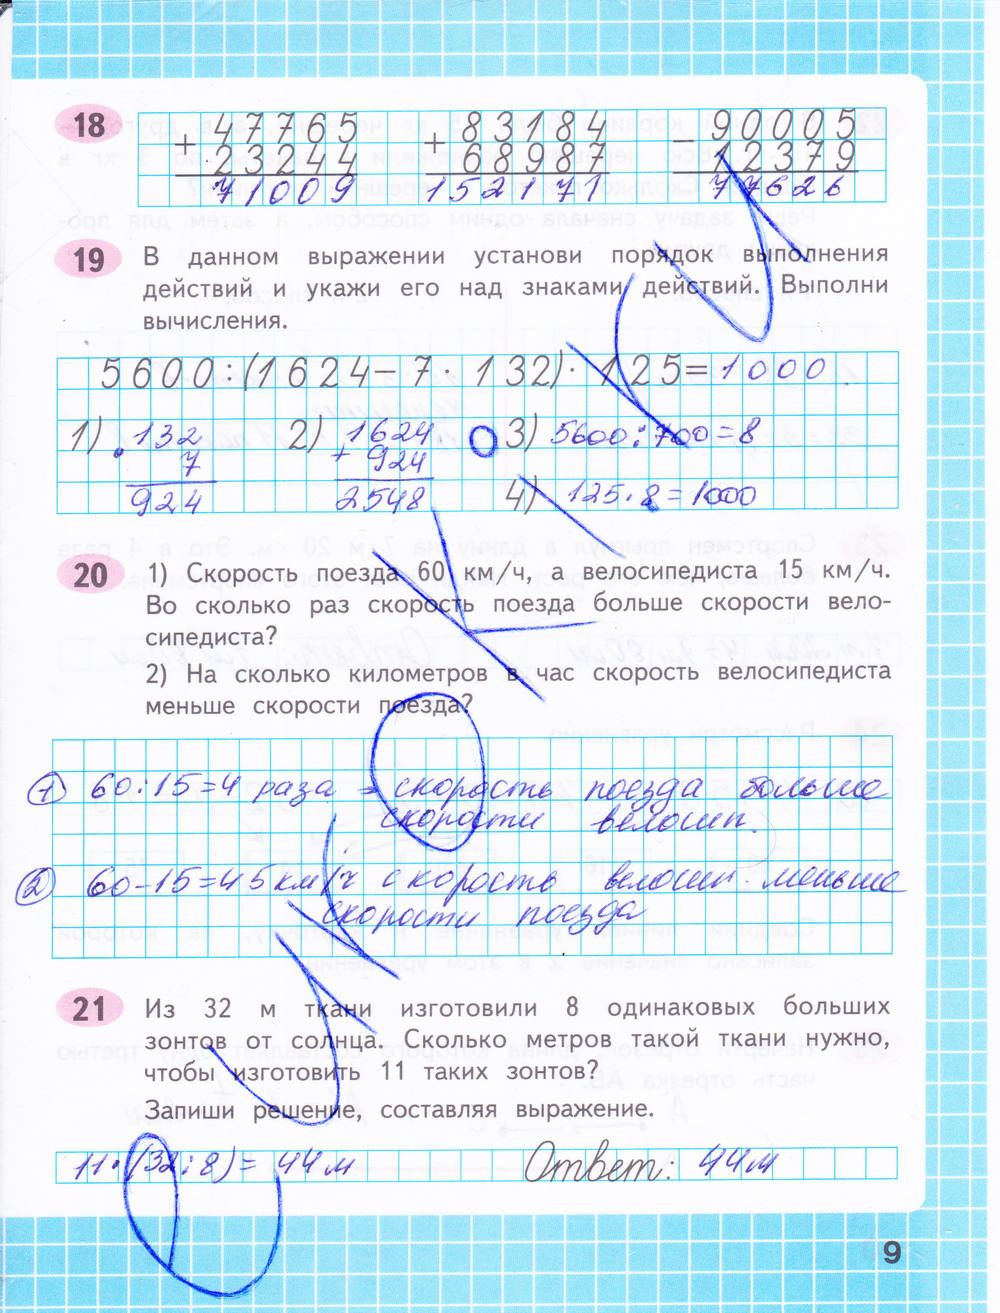 18
+ 47765 + 83184 - 90005
23244 68987 12379
71009 152171 77626
19 В данном выражении установи порядок выполнения
действий и укажи его над знаками действий. Выполни
вычисления.
5600:(1624-7·132)·125=1000
1) 132 2) 1624 3) 5600:700=8
· 7 + 924
924 2548 4) 125·8=1000
20 1) Скорость поезда 60 км/ч, а велосипедиста 15 км/ч.
Во сколько раз скорость поезда больше скорости вело-
сипедиста?
2) На сколько километров в час скорость велосипедиста
меньше скорости поезда?
1) 60:15=4 раза - скорость поезда больше
скорости велосип.
2) 60-15=45 км/ч скорость велосип. меньше
скорости поезда
21 Из 32 м ткани изготовили 8 одинаковых больших
зонтов от солнца. Сколько метров такой ткани нужно,
чтобы изготовить 11 таких зонтов?
Запиши решение, составляя выражение.
11·(32:8)= 44 м Ответ: 44 м
9